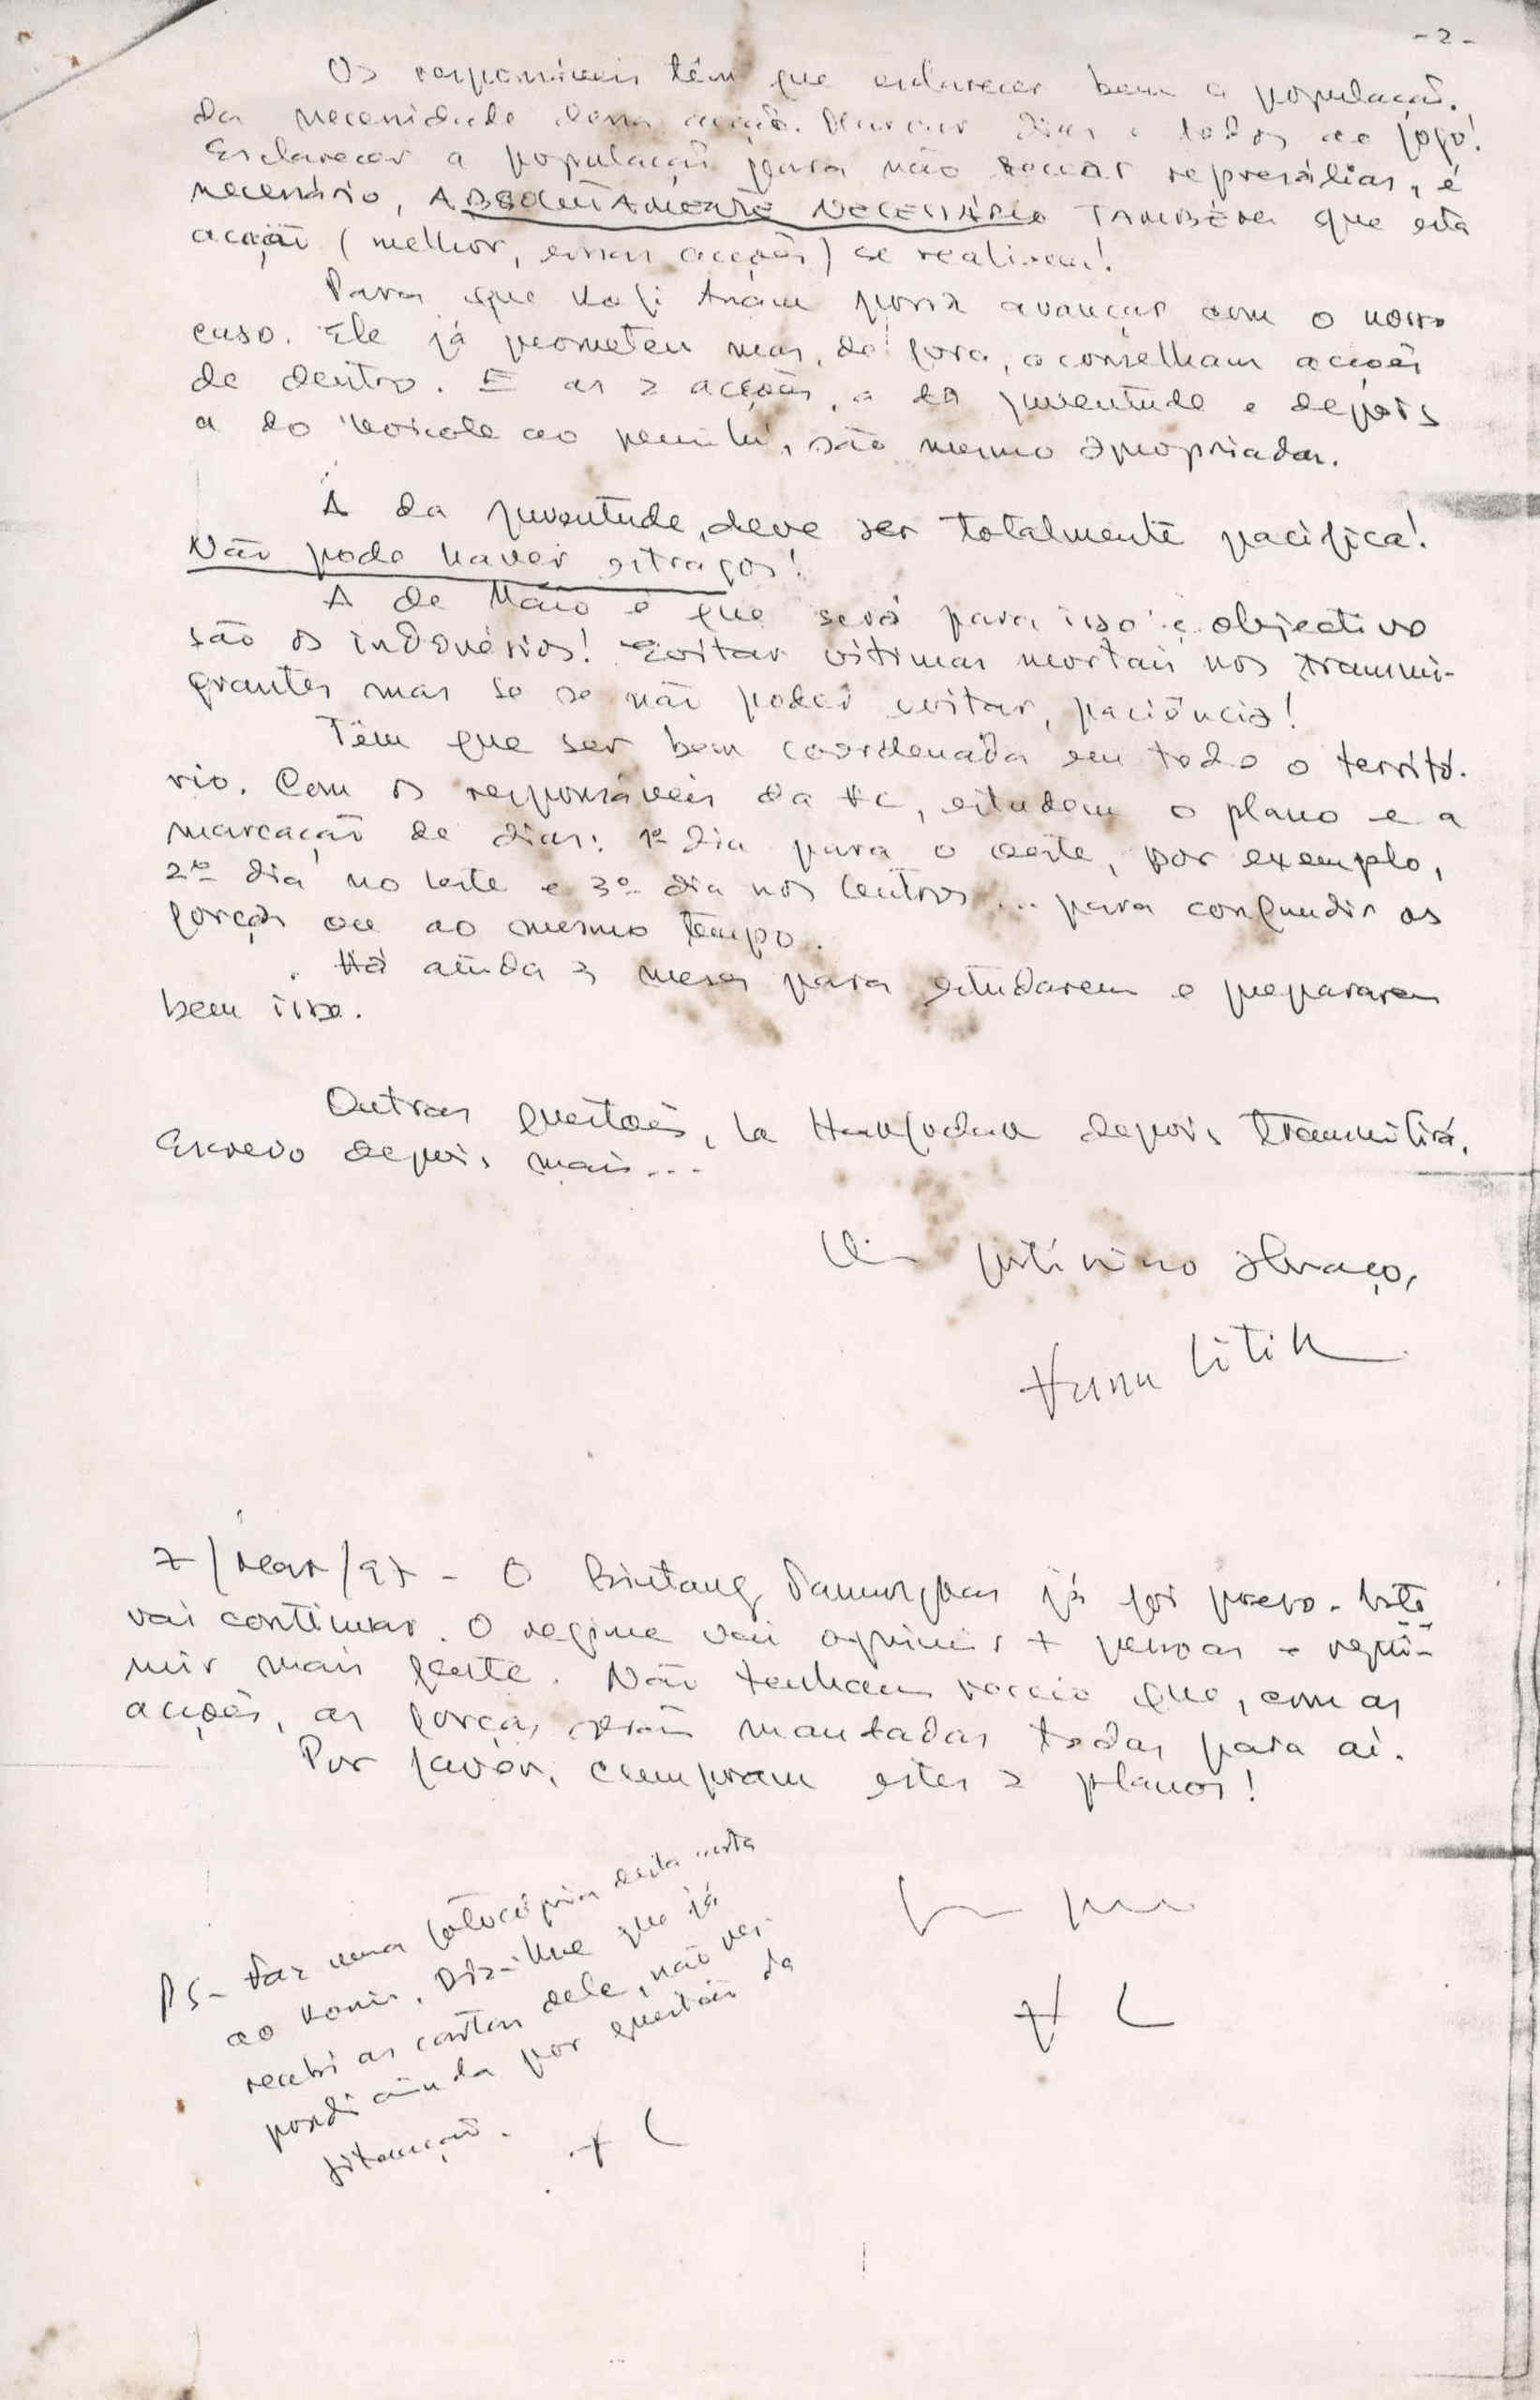 - 2 -
Os responsáveis têm que esclarecer bem a população.
da necessidade dessa acção. Marcar dias e todos ao jogo!
Esclarecer a população para não recear represálias, é
necessário, ABSOLUTAMENTE NECESSÁRIO TAMBÉM que esta
acção (melhor, essas acções) se realizem!
Para que Kofi Anam possa avançar com o nosso
caso. Ele já prometeu mas, de fora, aconselham acções
de dentro. E as 2 acções, a da juventude e depois
a do boicote ao pemilu, são mesmo apropriadas.
A da juventude, deve ser totalmente pacífica!
Não pode haver estragos!
A de Maio é que será para isso e objectivo
são os indonésios! Evitar vítimas mortais nos transmi-
grantes mas se se não poder evitar, paciência!
Têm que ser bem coordenada em todo o territó-
rio. Com os responsáveis da FC, estudem o plano e a
marcação de dias: 1º dia para o oeste, por exemplo,
2º dia no leste e 3º dia nos centros... para confundir as
forças ou ao mesmo tempo.
Há ainda 2 meses para estudarem e prepararem
bem isso.
Outras questões, la depois transmitirá.
Escrevo depois mais...
Um abraço,
7/Mar/97 - O Bintang Pamungkas já foi preso. Isto
vai continuar. O regime vai oprimir + pessoas e repri-
mir mais gente. Não tenham receio que, com as
acções, as forças serão mandadas todas para aí.
Por favor, cumpram estes 2 planos!
PS - Faz uma fotocópia desta carta
ao Konis. Diz-lhe que já
recebi as cartas dele, não res-
pondi ainda por questões da
situação.